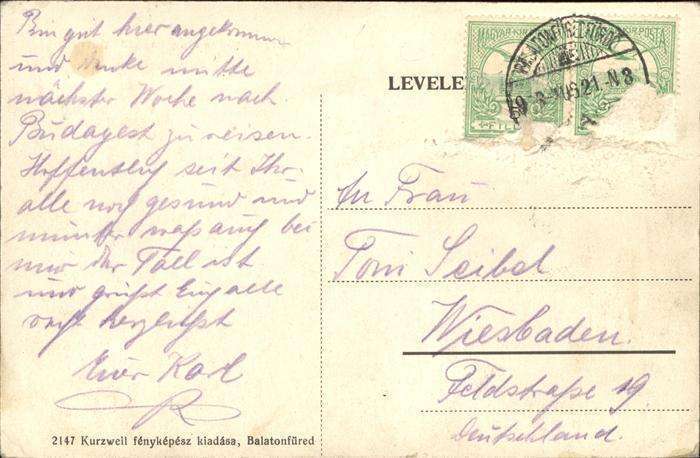 Bin gut hier angekommen
und denke mitte
nächster Woche nach
Budapest zu reisen.
Hoffentlich seit Ihr
alle noch gesund und
munter was auch bei
mir der Fall ist
und grüßt Euch alle
recht herzlichst
Euer Karl
2147 Kurzweil fényképész kiadása, Balatonfüred
LEVELE
MAGYAR KIR. POSTA
BALATONFÜRED
AUG 21. N 3
A
An Frau
Toni Seibel
Wiesbaden.
Feldstraße 19
Deutschland.